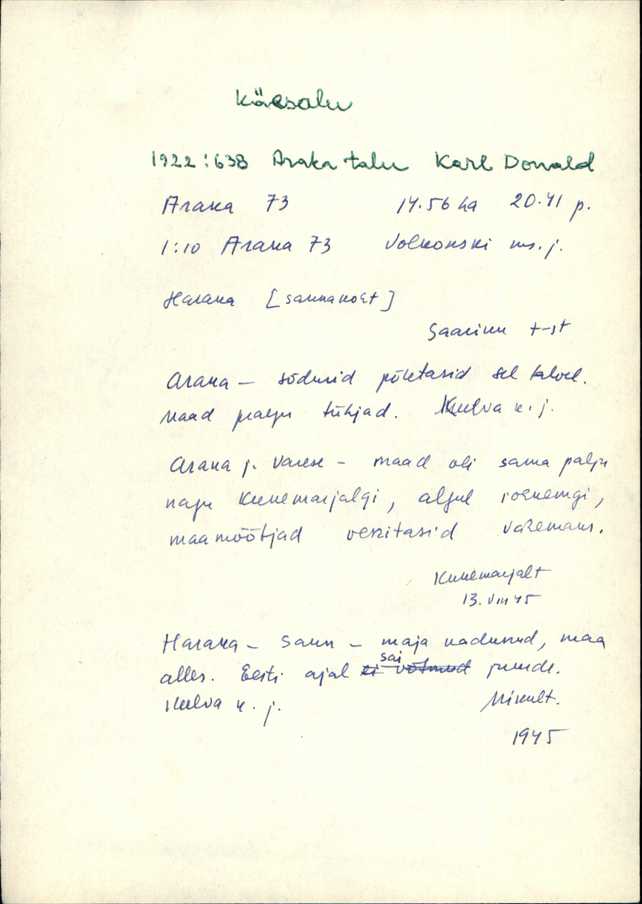 Käesalu
1922:638 Araka talu Karl Donald
Araka 73 14.56 ha 20.41 p.
1:10 Araka 73 Volkonski ms. j.
Haraka [saunakoht]
Saarinu t-st
Araka – sõdurid põletasid sel talvel.
maad palju tühjad. Kulva k. j.
Araka j. Varese – maad oli sama palju
nagu Kunemarjalgi, algul rohkemgi,
maamõõtjad veskitasid vähemaks.
Kunemarjalt
13. VIII 45
Haraka – Saun – maja kadunud, maa
alles. Eesti ajal sai juurde.
Kulva k. j. Mikult.
1945